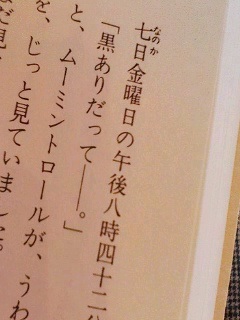 なのか
七日金曜日の午後八時四十二分
「黒ありだって――。」
と、ムーミントロールが、うわ
を、じっと見ていました。
だ見